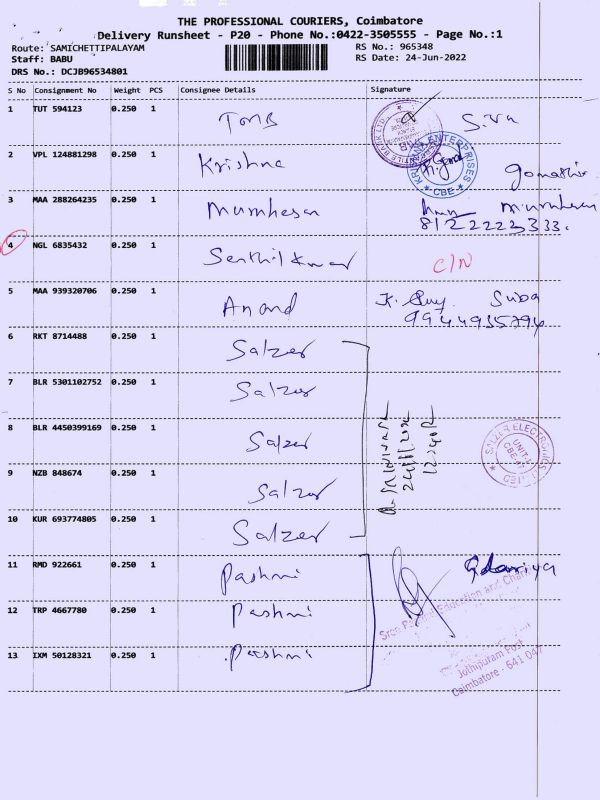 THE PROFESSIONAL COURIERS, Coimbatore
Delivery Runsheet - P20 - Phone No.:0422-3505555 - Page No.:1
Route: SAMICHETTIPALAYAM
RS No.: 965348
Staff: BABU
RS Date: 24-Jun-2022
DRS No.: DCJB96534801
S No Consignment No Weight PCS Consignee Details Signature
1 TUT 594123 0.250 1 TMB S.Va
2 VPL 124881298 0.250 1 Krishna
KRISHNA ENTERPRISES
* CBE *
3 MAA 288264235 0.250 1 Murughesan
4 NGL 6835432 0.250 1 Senthilkumar C/N
5 MAA 939320706 0.250 1 Anand K. Suba
9944935794
6 RKT 8714488 0.250 1 Salzer
7 BLR 5301102752 0.250 1 Salzer
8 BLR 4450399169 0.250 1 Salzer
SALZER ELECTRONICS
UNIT-I
9 NZB 848674 0.250 1 Salzer
10 KUR 693774805 0.250 1 Salzer
11 RMD 922661 0.250 1 Pashmi
12 TRP 4667780 0.250 1 Pashmi
Education and Chari
13 IXM 50128321 0.250 1 Pashmi
Jothipuram Post
Coimbatore - 641 047